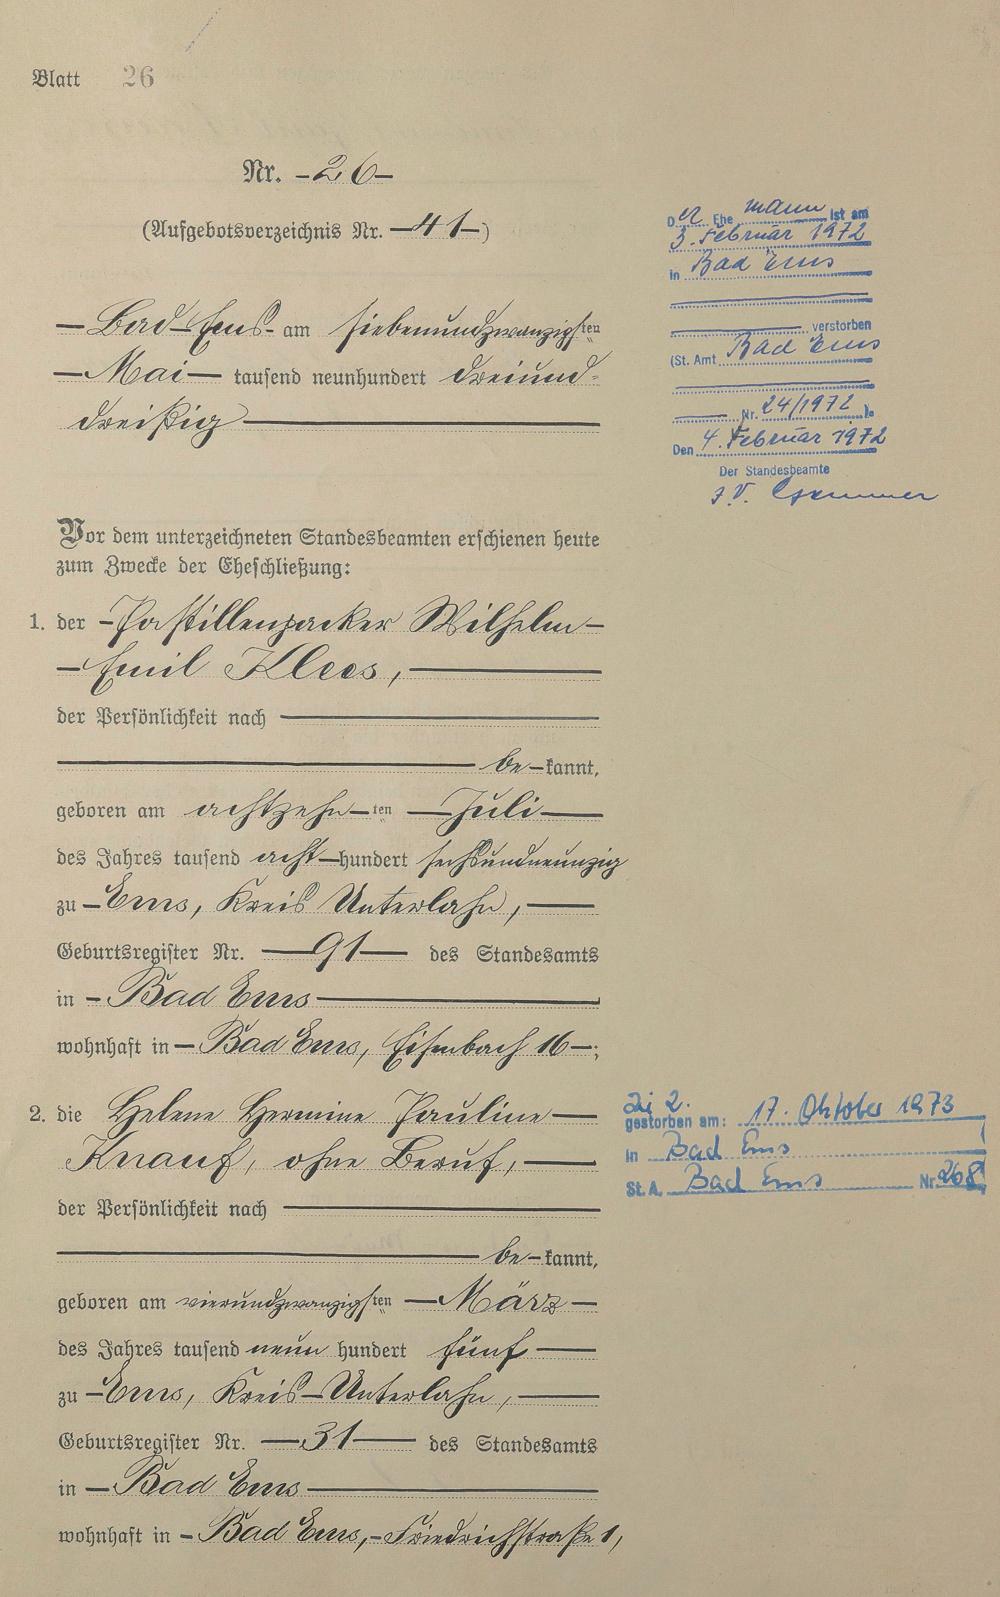 Blatt 26
Nr. -26-
(Aufgebotsverzeichnis Nr. -41-)
- Bad-Ems- am siebenundzwanzigsten
- Mai - tausend neunhundert dreiund-
dreißig
Vor dem unterzeichneten Standesbeamten erschienen heute
zum Zwecke der Eheschließung:
1. der - Pastillenpacker Wilhelm -
- Emil Klees,
der Persönlichkeit nach
be-kannt,
geboren am achtzehn-ten - Juli -
des Jahres tausend acht-hundert sechsundneunzig
zu - Ems, Kreis Unterlahn, -
Geburtsregister Nr. - 91 - des Standesamts
in - Bad Ems
wohnhaft in - Bad Ems, Eisenbach 16 -;
2. die Helene Hermine Pauline -
Knauf, ohne Beruf, -
der Persönlichkeit nach
be-kannt,
geboren am vierundzwanzigsten - März -
des Jahres tausend neun hundert fünf -
zu - Ems, Kreis-Unterlahn, -
Geburtsregister Nr. - 31 - des Standesamts
in - Bad Ems
wohnhaft in - Bad Ems, - Friedrichstraße 1,
Der Ehemann ist am
3. Februar 1972
in Bad Ems
verstorben
(St. Amt Bad Ems
Nr. 24/1972 ).
Den 4. Februar 1972
Der Standesbeamte
I.V.
Zi 2.
gestorben am: 17. Oktober 1973
in Bad Ems
St. A. Bad Ems Nr. 268